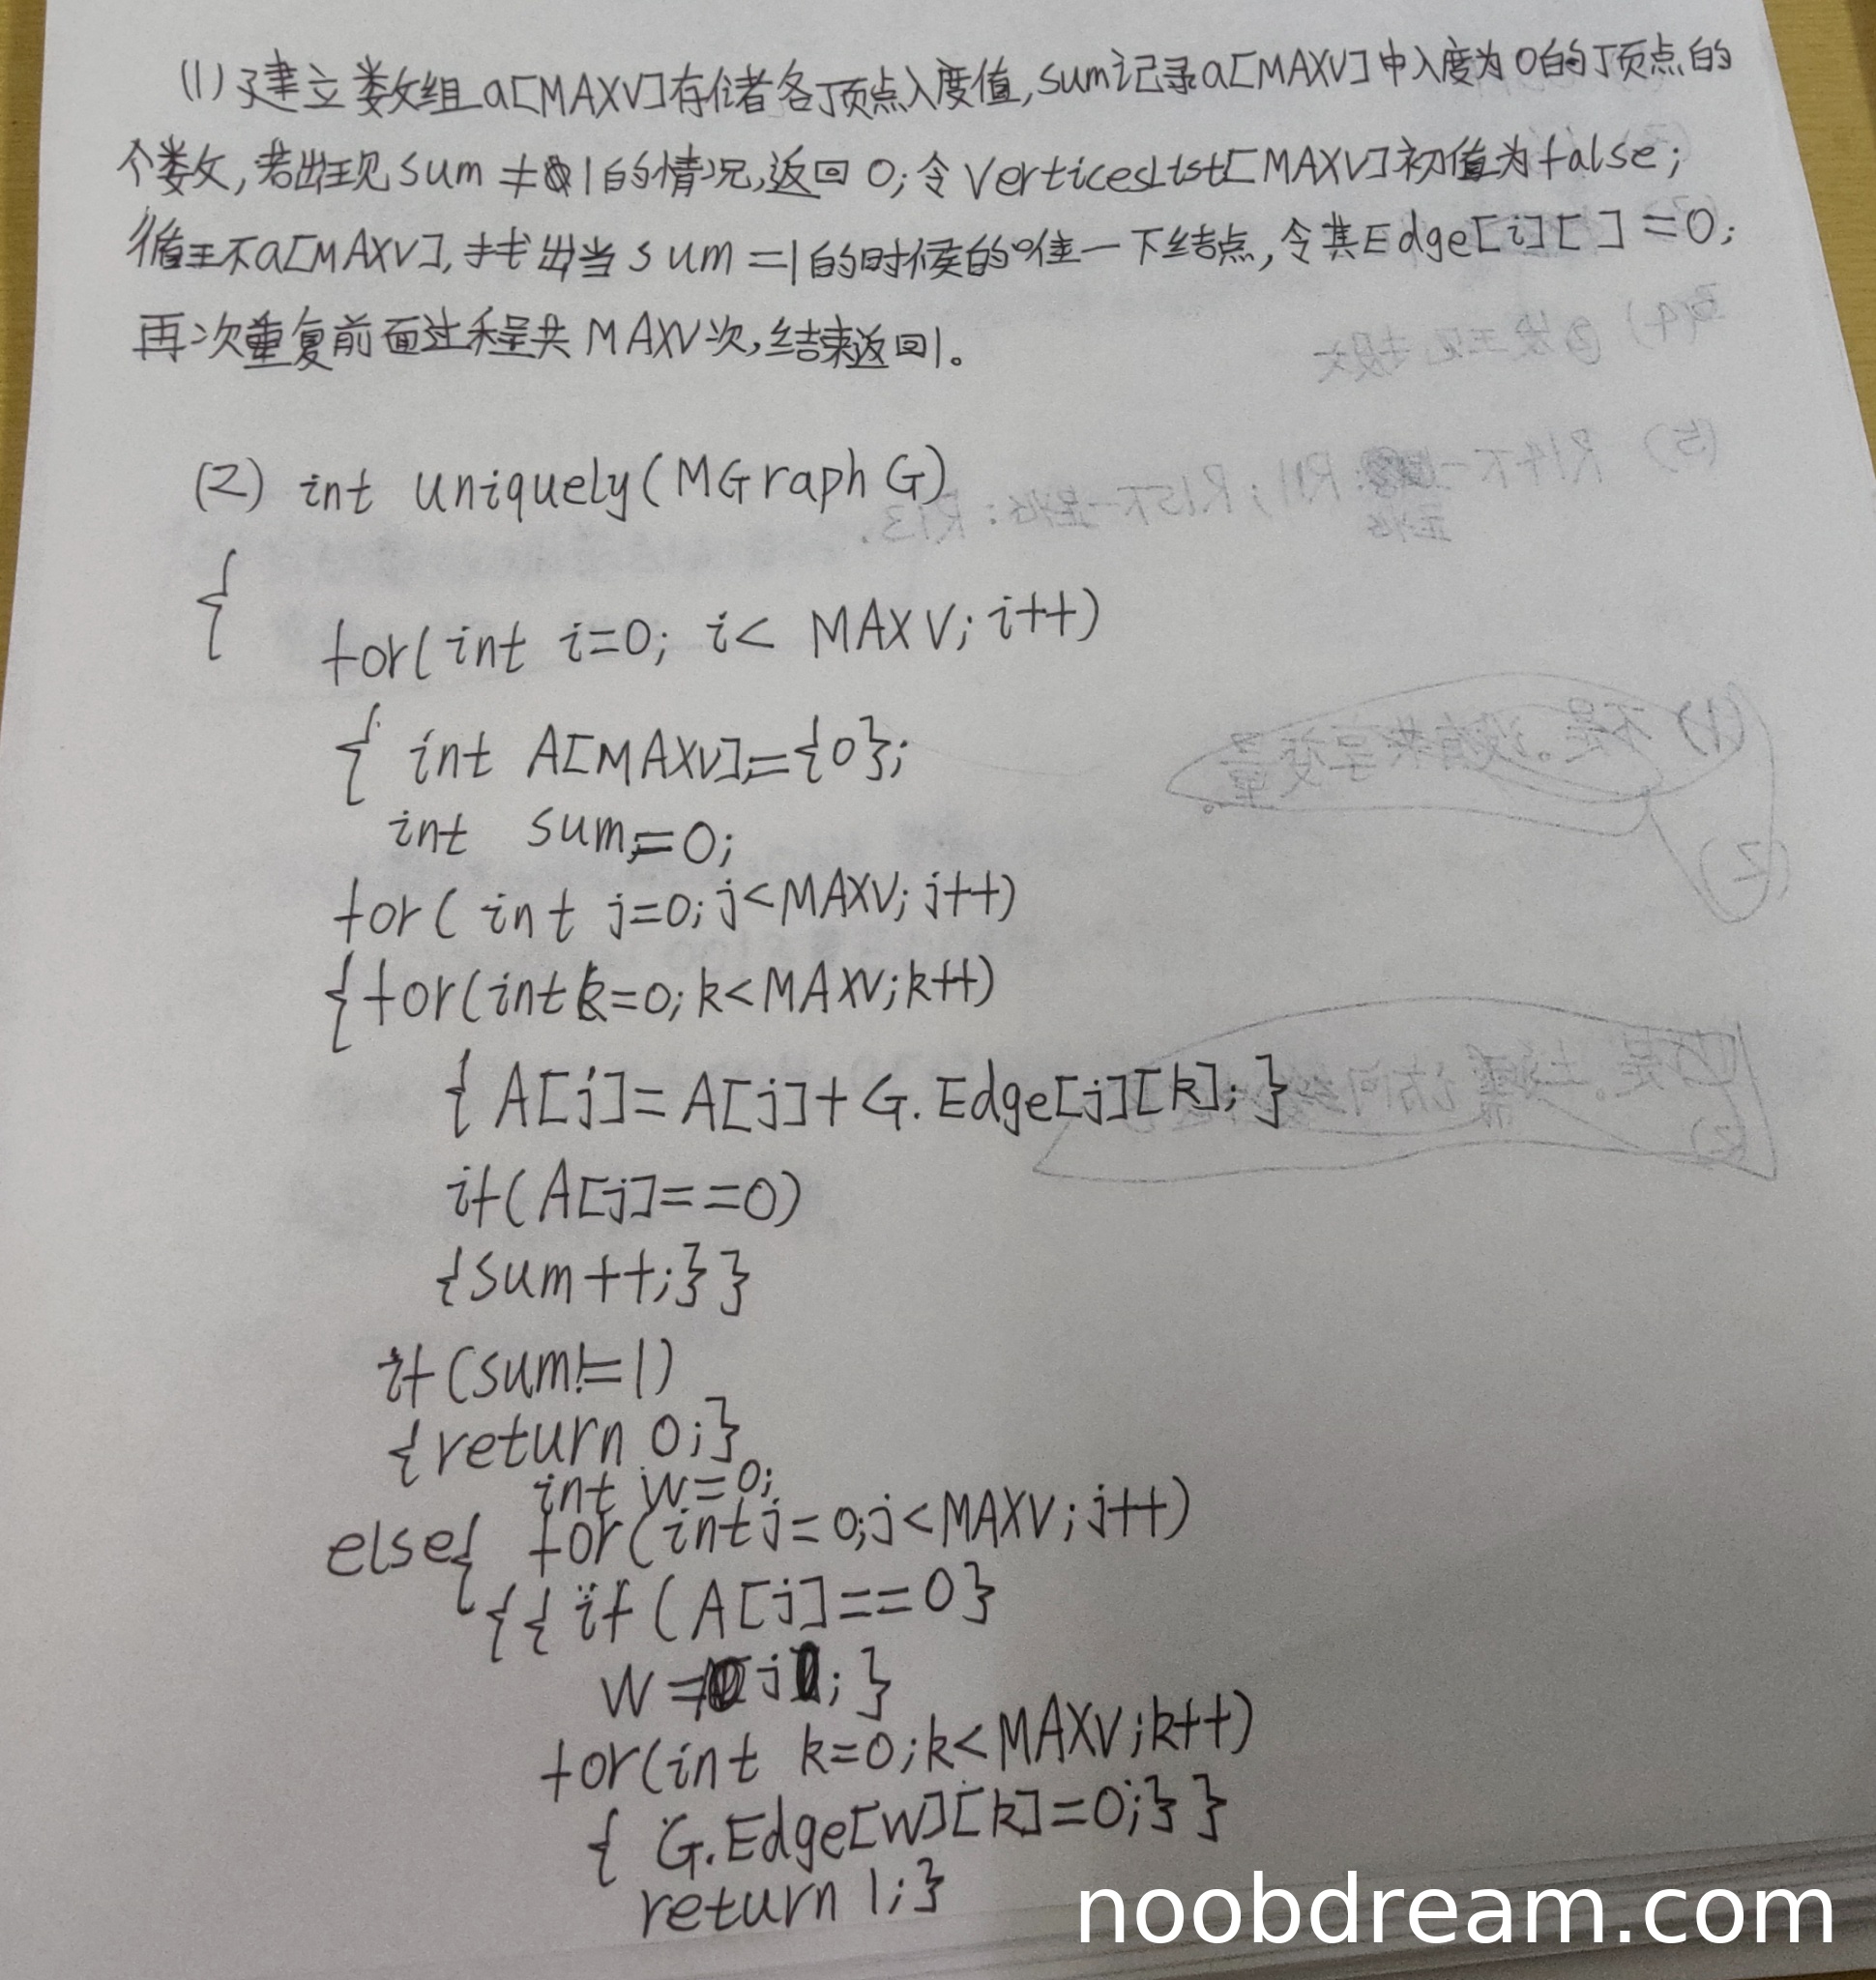 (1)建立数组a[MAXV]存储各顶点入度值,sum记录a[MAXV]中入度为0的顶点的
个数,若出现sum≠1的情况,返回0;令VerticesList[MAXV]初值为false;
循环a[MAXV],找出当sum=1的时候的唯一下结点,令其Edge[i][ ]=0;
再次重复前面过程共MAXV次,结束返回1。
(2) int uniquely(MGraph G)
{
for(int i=0; i< MAXV; i++)
{ int A[MAXV]={0};
int sum=0;
for( int j=0;j<MAXV;j++)
{for(int k=0;k<MAXV;k++)
{ A[j]=A[j]+G.Edge[j][k];}
if(A[j]==0)
{sum++;}}
if(sum!=1)
{return 0;}
int w=0;
else{ for(int j=0;j<MAXV;j++)
{{if(A[j]==0}
W=j;}
for(int k=0;k<MAXV;k++)
{ G.Edge[W][k]=0;}}
return 1;}
noobdream.com